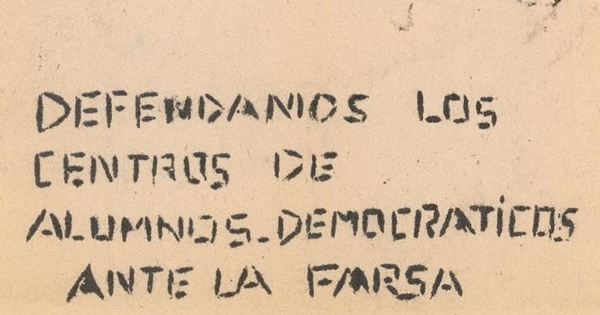 DEFENDAMOS LOS
CENTROS DE
ALUMNOS-DEMOCRATíCOS
ANTE LA FARSA